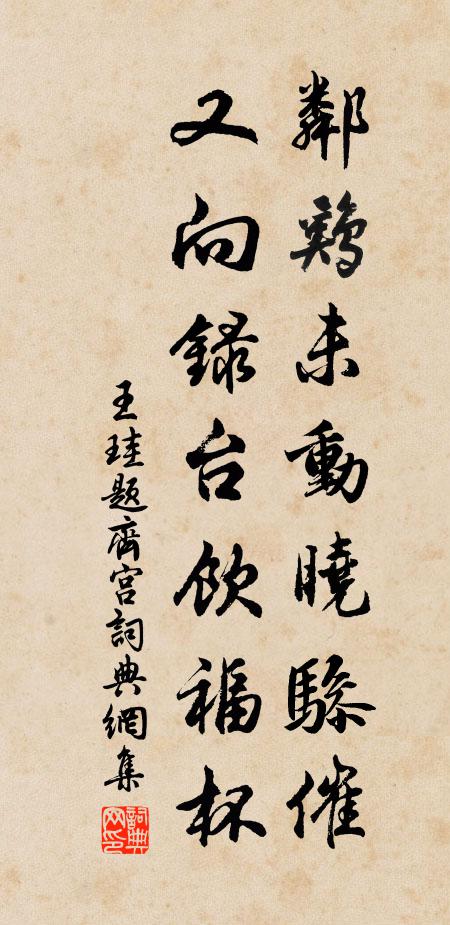 鄰鷄未動曉驂催
又向録台飲福杯
王珪題齊宮詞典網集
詞典網印